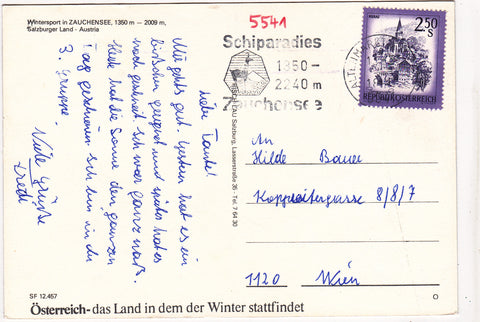 Wintersport in ZAUCHENSEE, 1350 m — 2009 m,
Salzburger Land - Austria
5541
Schiparadies
1350 -
2240 m
Zauchensee
2.50
S
REPUBLIK ÖSTERREICH
Liebe Tante!
Mir geht's gut. Gestern hat es ein
bißchen geregnet und später hat es
noch geschneit. Ich war ganz naß.
Heute hat die Sonne den ganzen
Tag geschienen. Ich bin in der
3. Gruppe.
Viele Grüße
Salzburg, Lasserstraße 26 - Tel. 7 64 30
An
Hilde Bauer
Koppreitergasse 8/8/7
1120 Wien
SF 12.457
Österreich - das Land in dem der Winter stattfindet